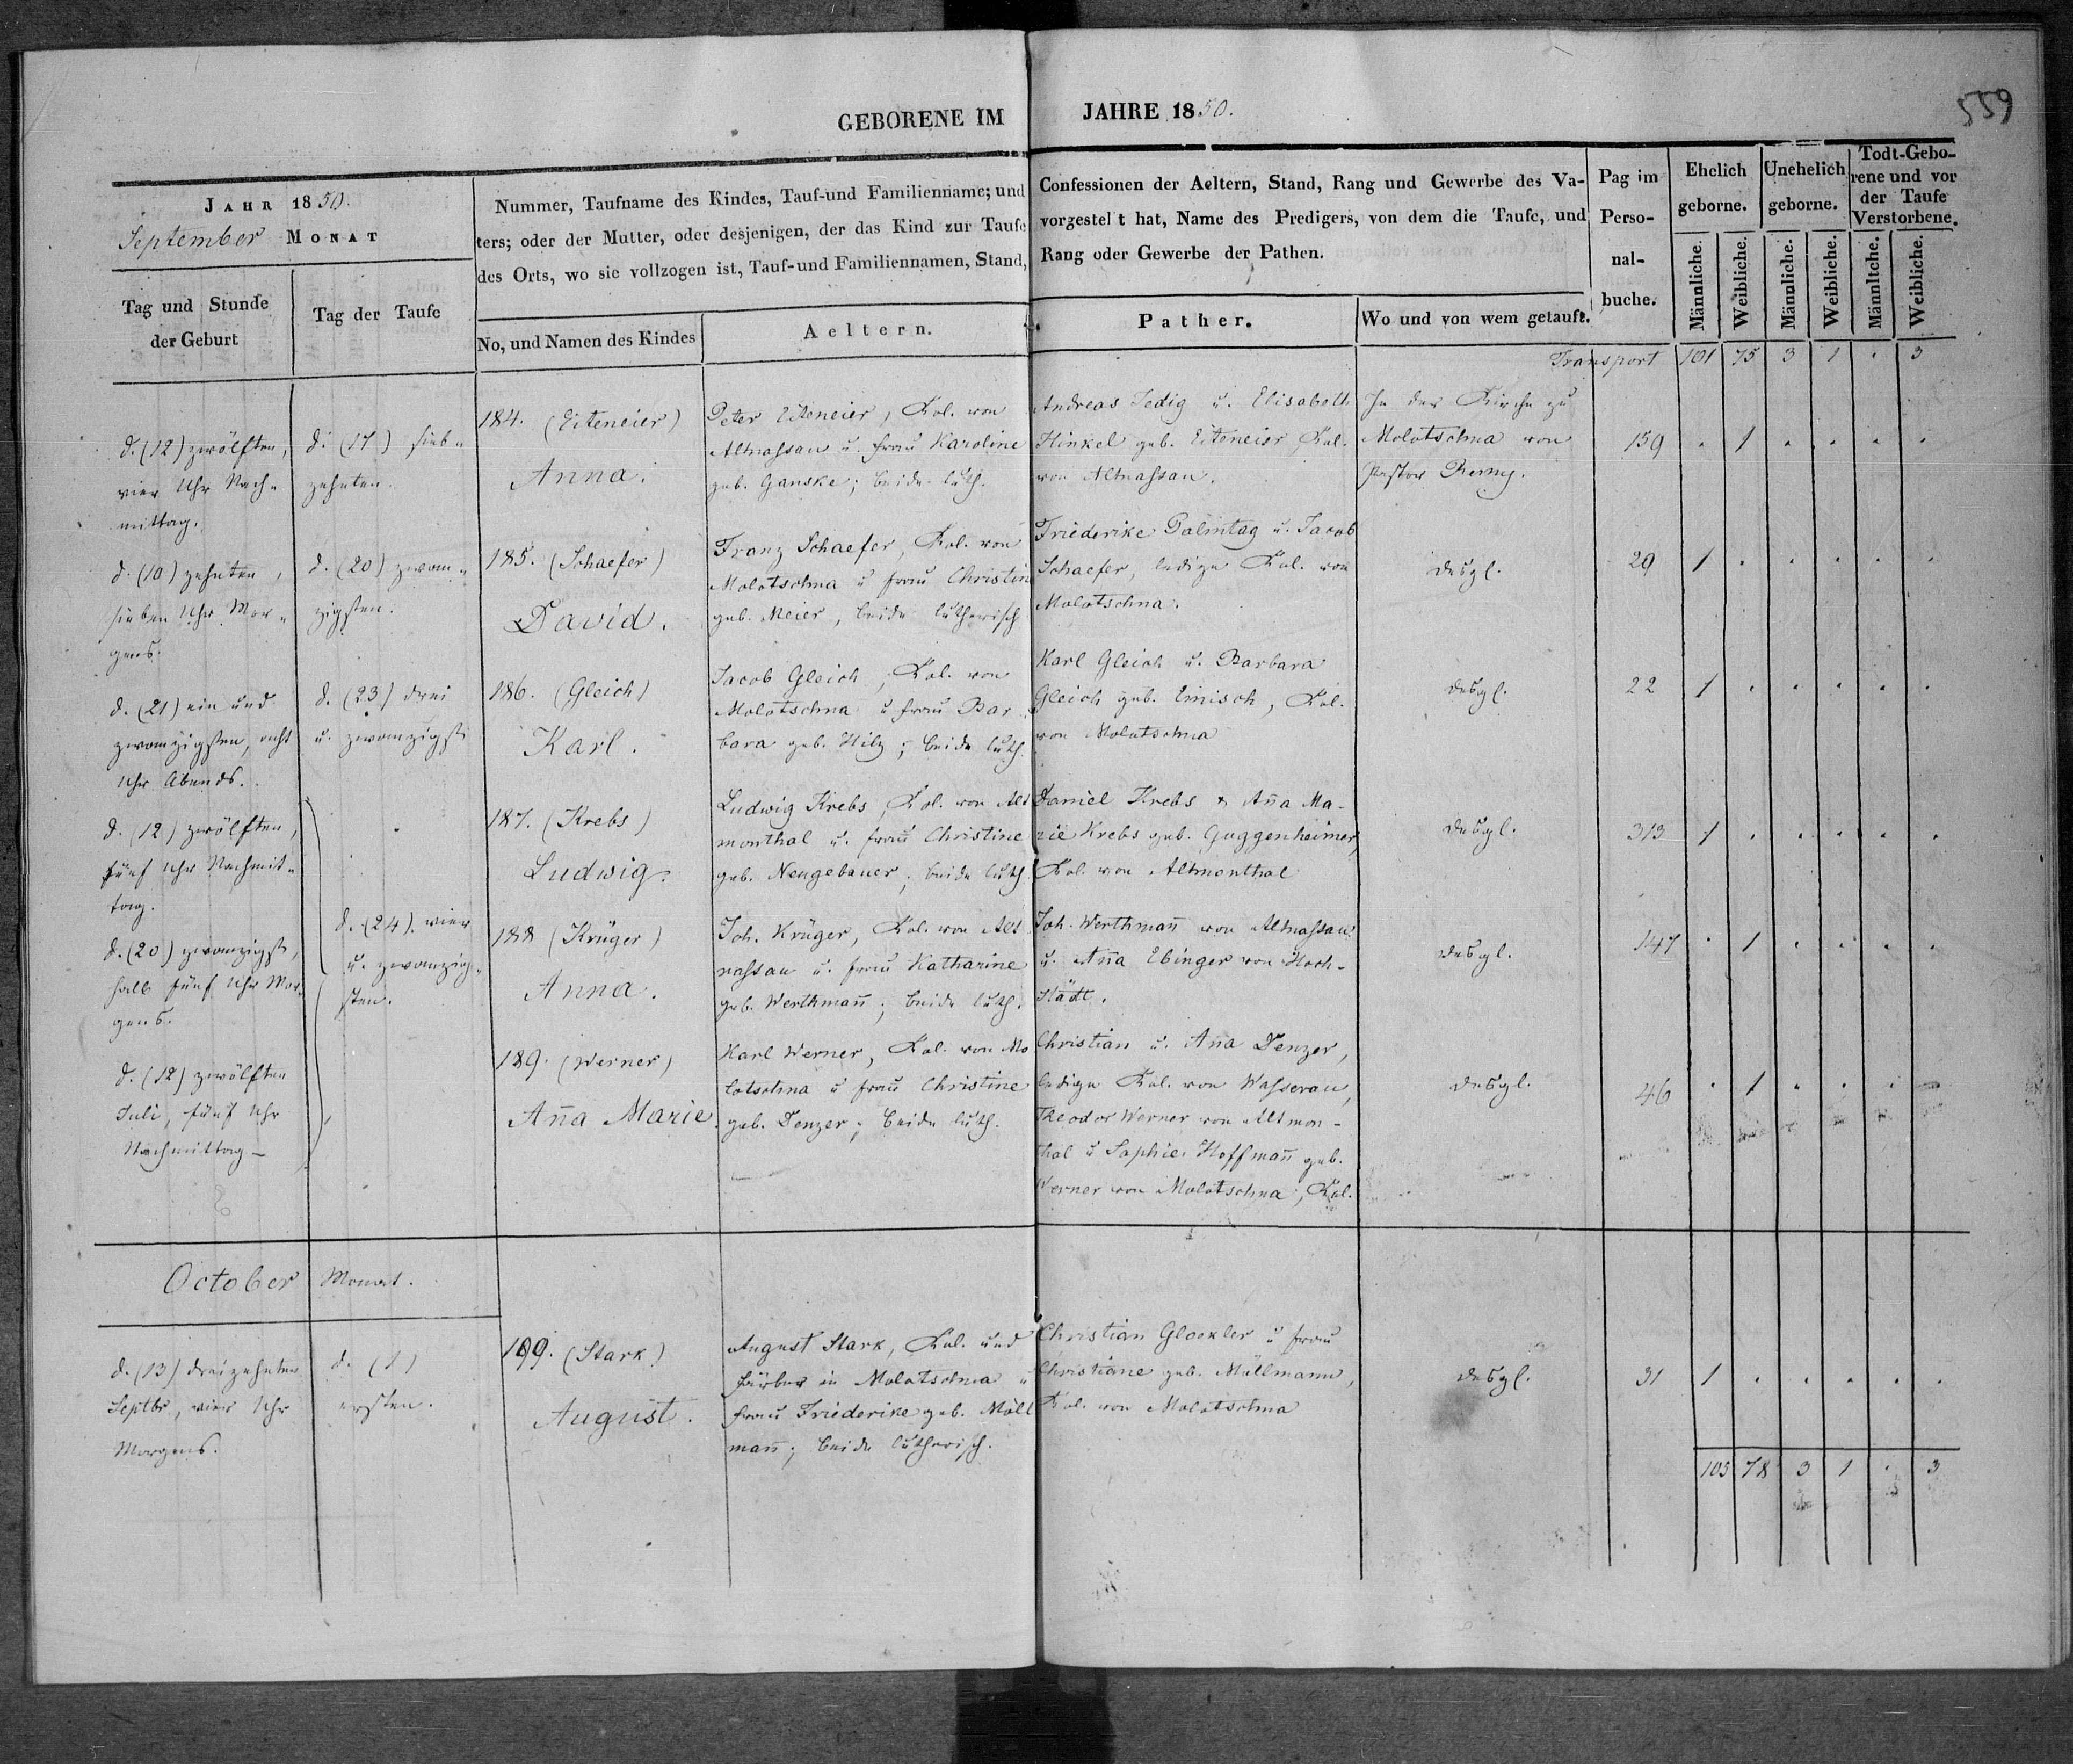 GEBORENE IM JAHRE 1850.
559
JAHR 1850.
September MONAT
Tag und Stunde
der Geburt
Tag der Taufe
Nummer, Taufname des Kindes, Tauf-und Familienname; und
ters; oder der Mutter, oder desjenigen, der das Kind zur Taufe
des Orts, wo sie vollzogen ist, Tauf-und Familiennamen, Stand,
No, und Namen des Kindes
Aeltern.
Confessionen der Aeltern, Stand, Rang und Gewerbe des Va-
vorgestel t hat, Name des Predigers, von dem die Taufe, und
Rang oder Gewerbe der Pathen.
Pather.
Wo und von wem getauft.
Pag im
Perso-
nal-
buche.
Ehelich
geborne.
Unehelich
geborne.
Todt-Gebo-
rene und vor
der Taufe
Verstorbene.
Männliche.
Weibliche.
Männliche.
Weibliche.
Männltche.
Weibliche.
Transport 101 75 3 1 . 3
d. (12) zwölften,
vier Uhr Nach-
mittag.
d. (17) sieb-
zehnten.
184. (Eiteneier)
Anna.
Peter Eiteneier, Kol. von
Altnassau u. Frau Karoline
geb. Ganske; beide luth.
Andreas Jedig u. Elisabeth
Hinkel geb. Eiteneier Kol.
von Altnassau.
In der Kirche zu
Molotschna von
Pastor Remy.
159 . 1 . . . .
d. (10) zehnten,
sieben Uhr Mor-
gens.
d. (20) zwan-
zigsten.
185. (Schaefer)
David.
Franz Schaefer, Kol. von
Molotschna u Frau Christin
geb. Meier, beide lutherisch
Friederike Palmtag u. Jacob
Schaefer, ledige Kol. von
Molotschna.
desgl.
29 1 . . . . .
d. (21) ein und
zwanzigsten, acht
Uhr Abends.
d. (23) drei
u. zwanzigst
186. (Gleich)
Karl.
Jacob Gleich, Kol. von
Molotschna u Frau Bar
bara geb. Hilz; beide luth.
Karl Gleich u. Barbara
Gleich geb. Emisch, Kol.
von Molotschna
desgl.
22 1 . . . . .
d. (12) zwölften,
fünf Uhr Nachmit-
tag.
187. (Krebs)
Ludwig.
Ludwig Krebs, Kol. von Alt
monthal u. Frau Christine
geb. Neugebauer; beide luth.
Daniel Krebs & Ana Ma-
rie Krebs geb. Guggenheimer,
Kol. von Altmonthal
desgl.
313 1 . . . . .
d. (20) zwanzigst,
halb fünf Uhr Mor-
gens.
d. (24) vier
u. zwanzig-
sten.
188 (Krüger)
Anna.
Joh. Krüger, Kol. von Alt
nassau u. Frau Katharine
geb. Werthmañ; beide luth.
Joh. Werthmañ von Altnassau
u. Aña Ebinger von Hoch-
städt.
desgl.
147 . 1 . . . .
d. (12) zwölften
Juli, fünf Uhr
Nachmittag -
189. (Werner)
Aña Marie.
Karl Werner, Kol. von Mo
lotschna u Frau Christine
geb. Denzer; beide luth.
Christian u. Aña Denzer,
ledige Kol. von Wasserau,
Theodor Werner von Altmon-
thal u Sophie Hoffmañ geb.
Werner von Molotschna, Kol.
desgl.
46 . 1 . . . .
October Monat.
d. (13) dreizehnten
Septbr, vier Uhr
Morgens.
d. (1)
ersten.
199. (Stark)
August.
August Stark, Kol. und
Färber in Molotschna u
Frau Friederike geb. Möll
mañ; beide lutherisch.
Christian Glockler u Frau
Christiane geb. Möllmann,
Kol. von Molotschna
desgl.
31 1 . . . . .
105 78 3 1 . 3